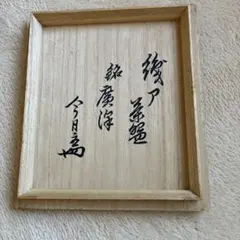 織部 茶盌
銘 廣澤
今日庵